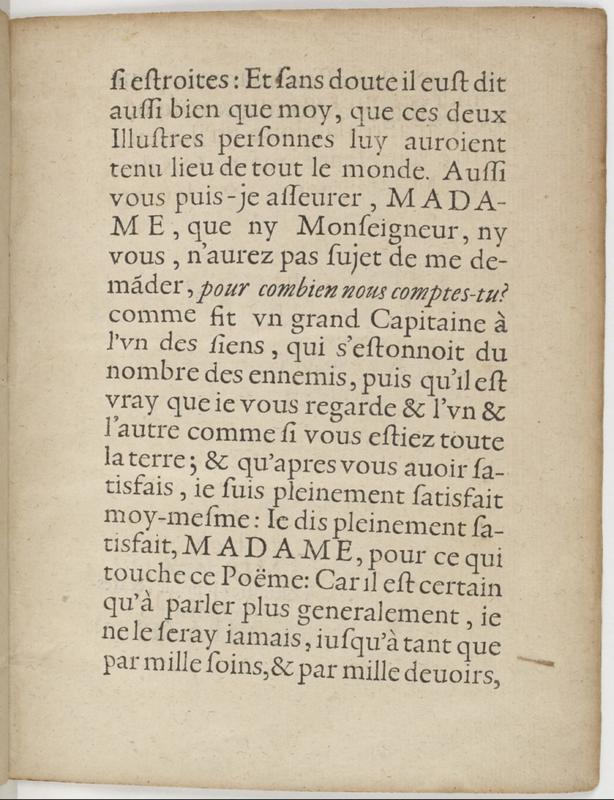 ſi eſtroites : Et ſans doute il euſt dit
auſſi bien que moy, que ces deux
Illuſtres perſonnes luy auroient
tenu lieu de tout le monde. Auſſi
vous puis-je aſſeurer, MADA-
ME, que ny Monſeigneur, ny
vous, n'aurez pas ſujet de me de-
mãder, pour combien nous comptes-tu?
comme fit vn grand Capitaine à
l'vn des ſiens, qui s'eſtonnoit du
nombre des ennemis, puis qu'il eſt
vray que ie vous regarde & l'vn &
l'autre comme ſi vous eſtiez toute
la terre; & qu'apres vous auoir ſa-
tisfais, ie ſuis pleinement ſatisfait
moy-meſme : Ie dis pleinement ſa-
tisfait, MADAME, pour ce qui
touche ce Poëme: Car il eſt certain
qu'à parler plus generalement, ie
ne le ſeray iamais, iuſqu'à tant que
par mille ſoins, & par mille deuoirs,